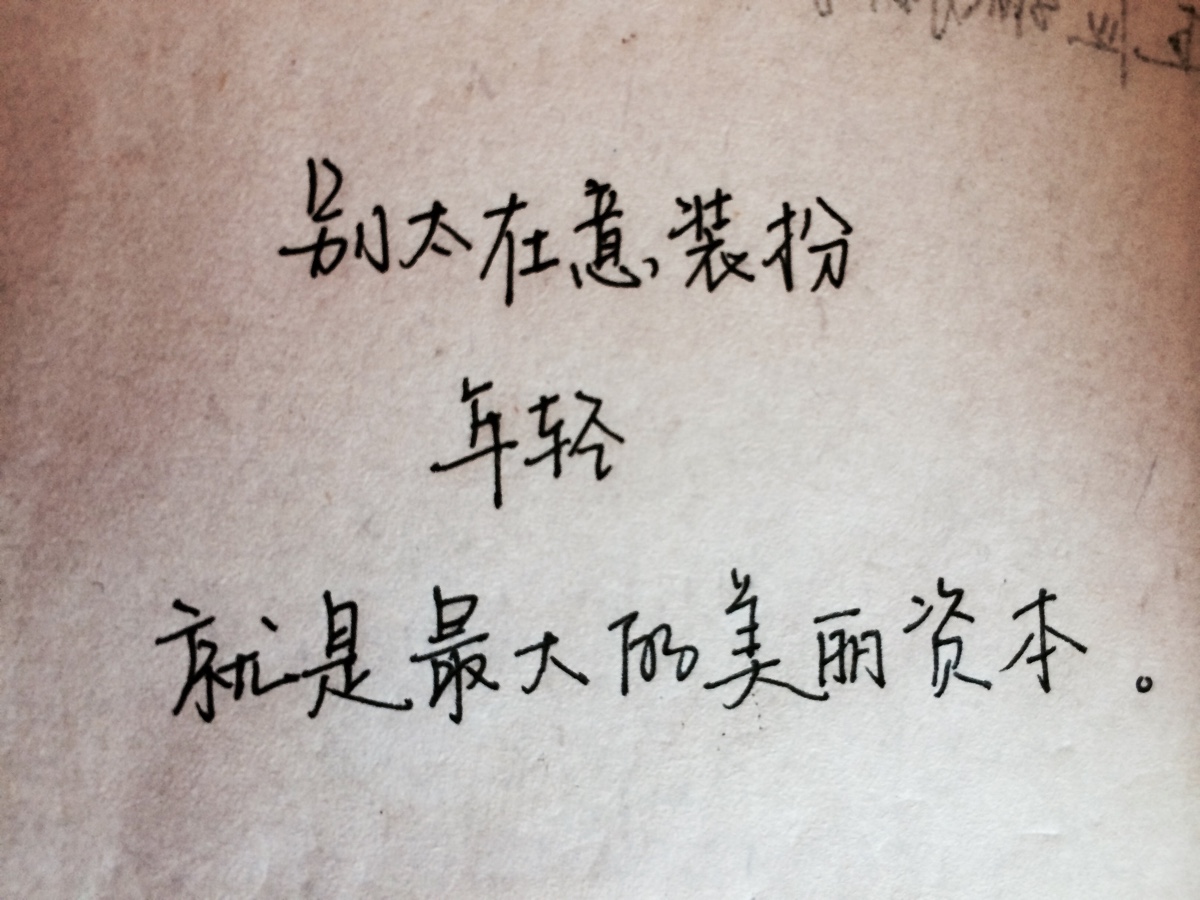 别太在意装扮
年轻
就是最大的美丽资本。